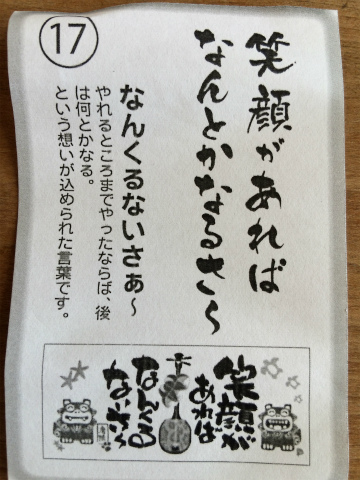 笑顔があれば
なんとかなるさ～
⑰
なんくるないさぁ～
やれるところまでやったならば、後
は何とかなる。
という想いが込められた言葉です。
笑顔が
あれば
なんくる
ないさぁ